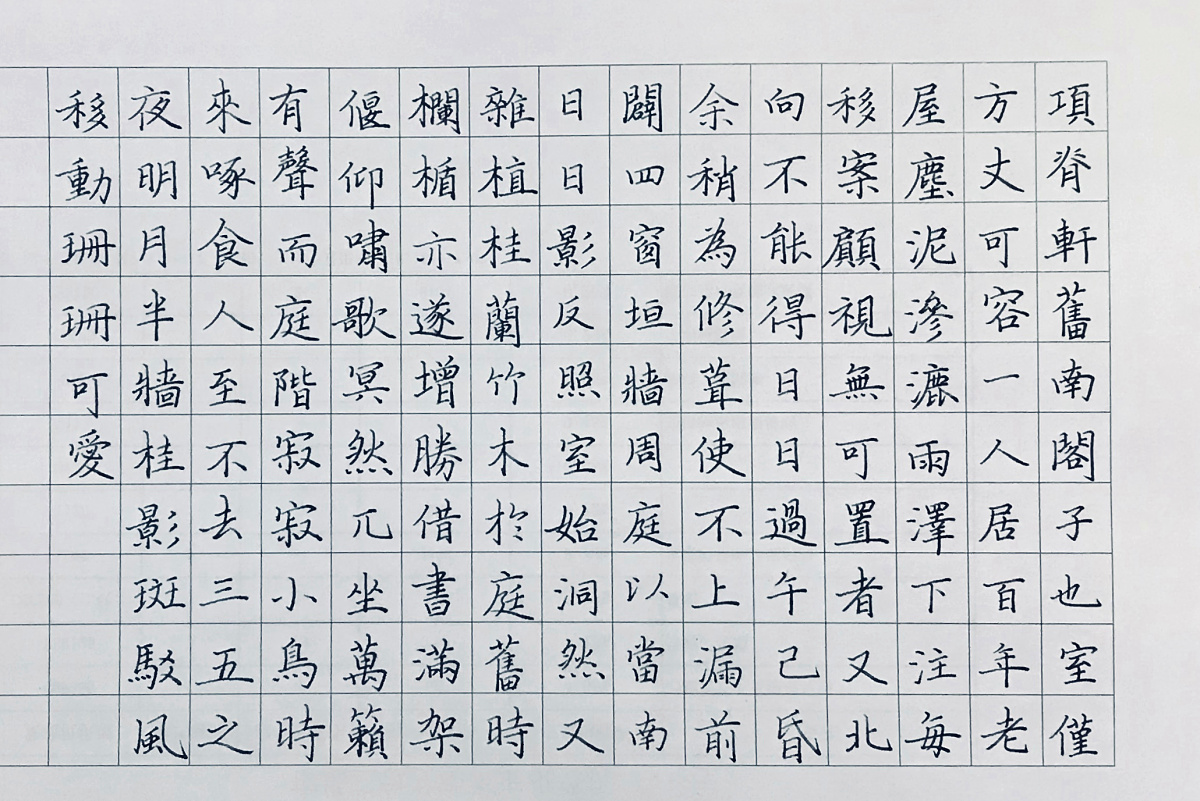 項脊軒舊南閣子也室僅
方丈可容一人居百年老
屋塵泥滲漉雨澤下注每
移案顧視無可置者又北
向不能得日日過午已昏
余稍為修葺使不上漏前
闢四窗垣牆周庭以當南
日日影反照室始洞然又
雜植桂蘭竹木於庭舊時
欄楯亦遂增勝借書滿架
偃仰嘯歌冥然兀坐萬籟
有聲而庭階寂寂小鳥時
來啄食人至不去三五之
夜明月半牆桂影斑駁風
移動珊珊可愛